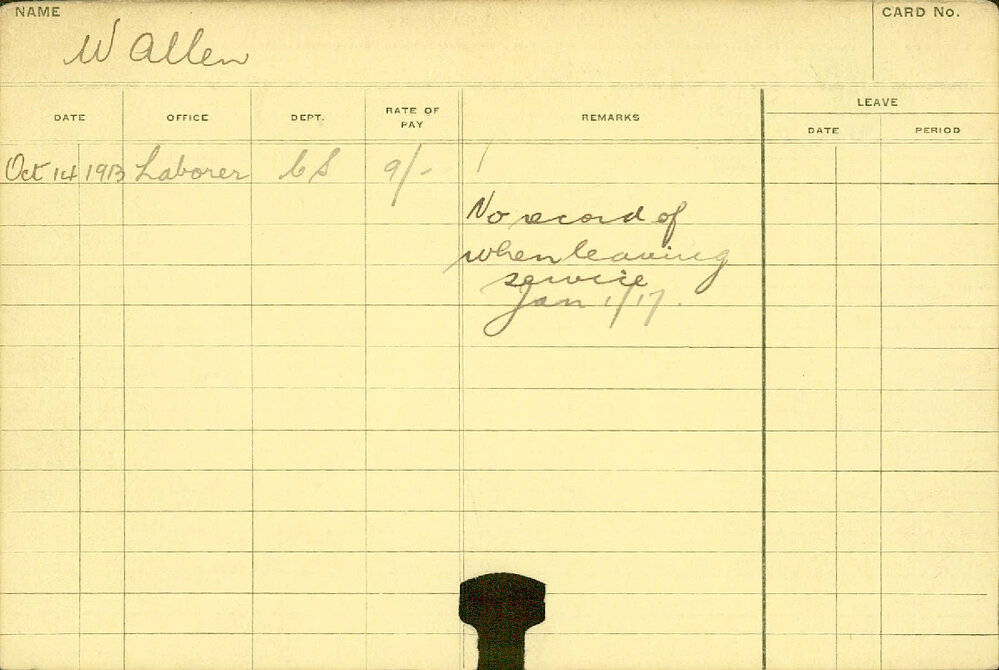 NAME
CARD No.
W Allen
DATE OFFICE DEPT. RATE OF PAY REMARKS LEAVE
DATE PERIOD
Oct 14 1913 Laborer CS 9/-
No record of
when leaving
service
Jan 1/17.